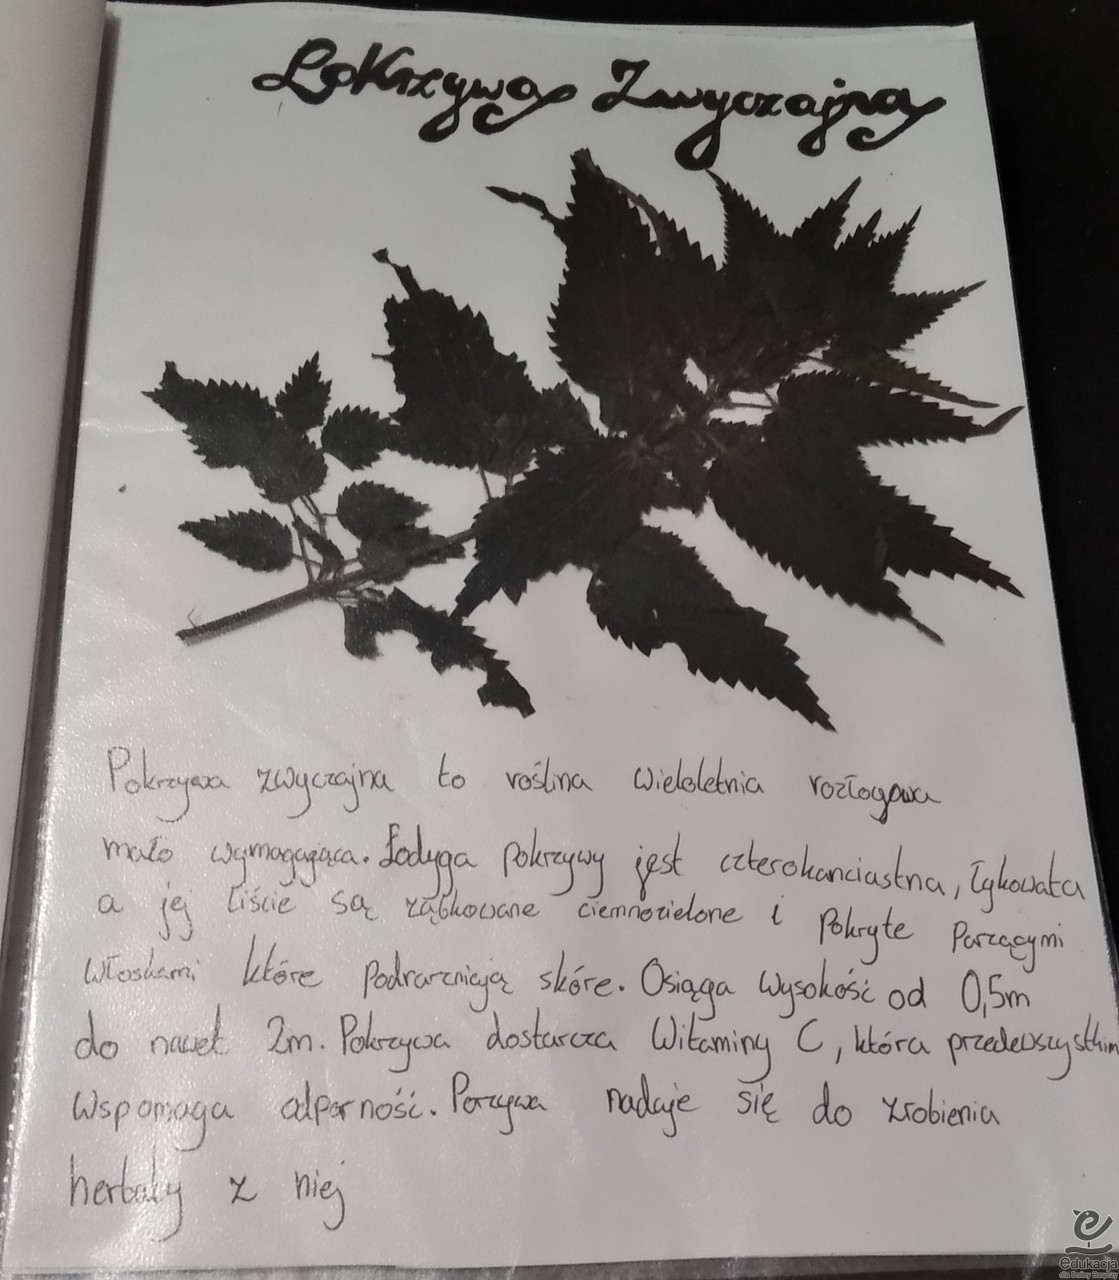 Pokrzywa Zwyczajna
Pokrzywa zwyczajna to roślina wieloletnia rozłogowa
mało wymagająca. Łodyga pokrzywy jest czterokanciastna, łykowata
a jej liście są ząbkowane ciemnozielone i pokryte parzącymi
włoskami które podrarzniają skóre. Osiąga wysokość od 0,5m
do nawet 2m. Pokrzywa dostarcza Witaminy C, która przedewszystkim
wspomaga odporność. Porzywa nadaje się do zrobienia
herbaty z niej
edukacja